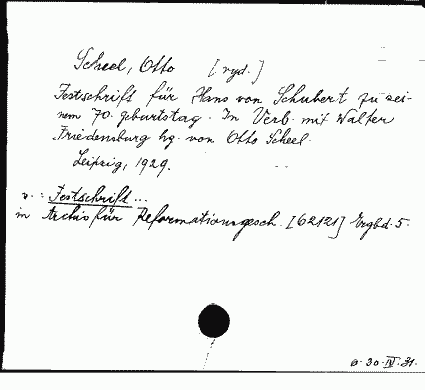 Scheel, Otto [ryd.]
Festschrift für Hans von Schubert zu sei-
nem 70. geburtstag. In Verb. mit Walter
Friedensburg hg. von Otto Scheel.
Leipzig, 1929.
v. : Festschrift ...
in Archiv für Reformationsgesch. [62121] Ergbd. 5.
30. IV. 31.